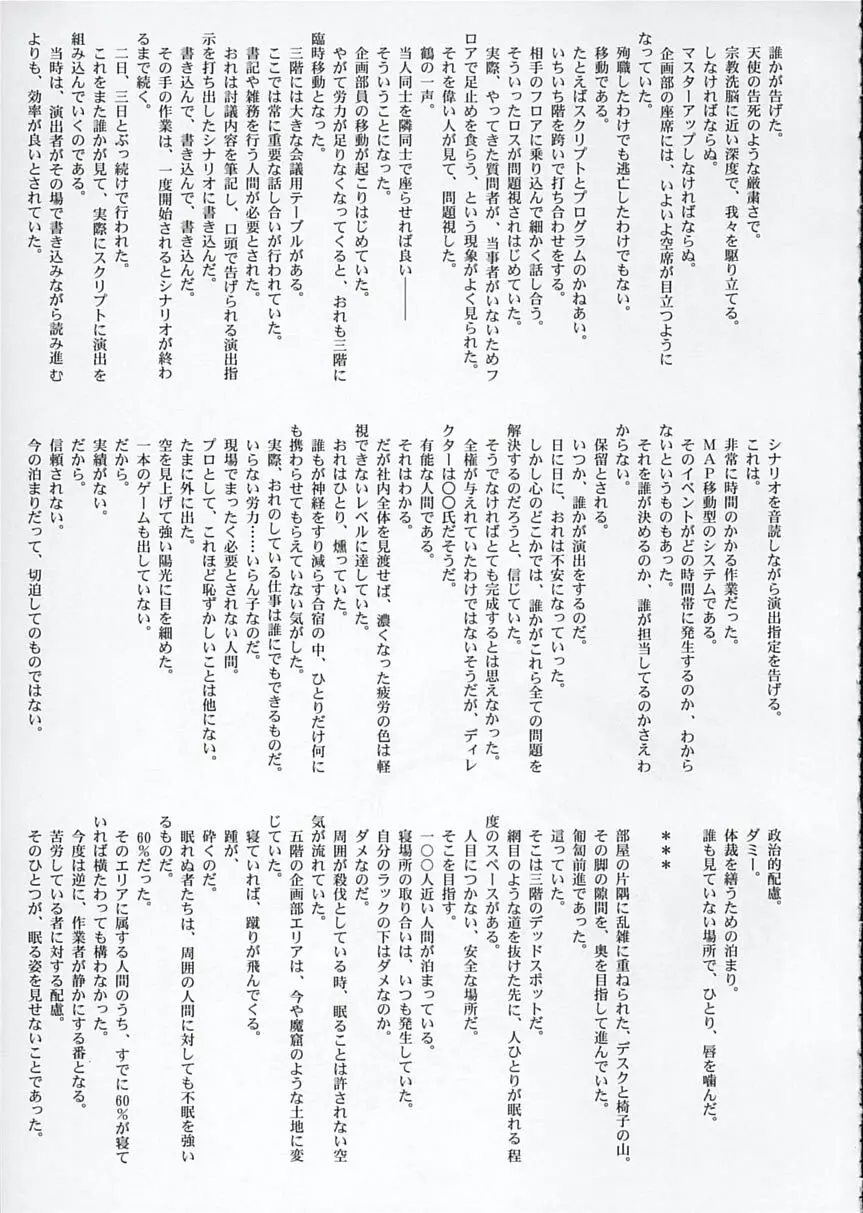 誰かが告げた。
天使の告死のような厳粛さで。
宗教洗脳に近い深度で、我々を駆り立てる。
しなければならぬ。
マスターアップしなければならぬ。
企画部の座席には、いよいよ空席が目立つように
なっていた。
殉職したわけでも逃亡したわけでもない。
移動である。
たとえばスクリプトとプログラムのかねあい。
いちいち階を跨いで打ち合わせをする。
相手のフロアに乗り込んで細かく話し合う。
そういったロスが問題視されはじめていた。
実際、やってきた質問者が、当事者がいないためフ
ロアで足止めを食らう、という現象がよく見られた。
それを偉い人が見て、問題視した。
鶴の一声。
当人同士を隣同士で座らせれば良い――
そういうことになった。
企画部員の移動が起こりはじめていた。
やがて労力が足りなくなってくると、おれも三階に
臨時移動となった。
三階には大きな会議用テーブルがある。
ここでは常に重要な話し合いが行われていた。
書記や雑務を行う人間が必要とされた。
おれは討議内容を筆記し、口頭で告げられる演出指
示を打ち出したシナリオに書き込んだ。
書き込んで、書き込んで、書き込んだ。
その手の作業は、一度開始されるとシナリオが終わ
るまで続く。
二日、三日とぶっ続けで行われた。
これをまた誰かが見て、実際にスクリプトに演出を
組み込んでいくのである。
当時は、演出者がその場で書き込みながら読み進む
よりも、効率が良いとされていた。
シナリオを音読しながら演出指定を告げる。
これは。
非常に時間のかかる作業だった。
MAP移動型のシステムである。
そのイベントがどの時間帯に発生するのか、わから
ないというものもあった。
それを誰が決めるのか、誰が担当してるのかさえわ
からない。
保留とされる。
いつか、誰かが演出をするのだ。
日に日に、おれは不安になっていった。
しかし心のどこかでは、誰かがこれら全ての問題を
解決するのだろうと、信じていた。
そうでなければとても完成するとは思えなかった。
全権が与えれていたわけではないそうだが、ディレ
クターは〇〇氏だそうだ。
有能な人間である。
それはわかる。
だが社内全体を見渡せば、濃くなった疲労の色は軽
視できないレベルに達していた。
おれはひとり、燻っていた。
誰もが神経をすり減らす合宿の中、ひとりだけ何に
も携わらせてもらえていない気がした。
実際、おれのしている仕事は誰にでもできるものだ。
いらない労力……いらん子なのだ。
現場でまったく必要とされない人間。
プロとして、これほど恥ずかしいことは他にない。
たまに外に出た。
空を見上げて強い陽光に目を細めた。
一本のゲームも出していない。
だから。
実績がない。
だから。
信頼されない。
今の泊まりだって、切迫してのものではない。
政治的配慮。
ダミー。
体裁を繕うための泊まり。
誰も見ていない場所で、ひとり、唇を噛んだ。
***
部屋の片隅に乱雑に重ねられた、デスクと椅子の山。
その脚の隙間を、奥を目指して進んでいた。
匍匐前進であった。
這っていた。
そこは三階のデッドスポットだ。
網目のような道を抜けた先に、人ひとりが眠れる程
度のスペースがある。
人目につかない、安全な場所だ。
そこを目指す。
一〇〇人近い人間が泊まっている。
寝場所の取り合いは、いつも発生していた。
自分のラックの下はダメなのか。
ダメなのだ。
周囲が殺伐としている時、眠ることは許されない空
気が流れていた。
五階の企画部エリアは、今や魔窟のような土地に変
じていた。
寝ていれば、蹴りが飛んでくる。
踵が、
砕くのだ。
眠れぬ者たちは、周囲の人間に対しても不眠を強い
るものだ。
60%だった。
そのエリアに属する人間のうち、すでに60%が寝て
いれば横たわっても構わなかった。
今度は逆に、作業者が静かにする番となる。
苦労している者に対する配慮。
そのひとつが、眠る姿を見せないことであった。